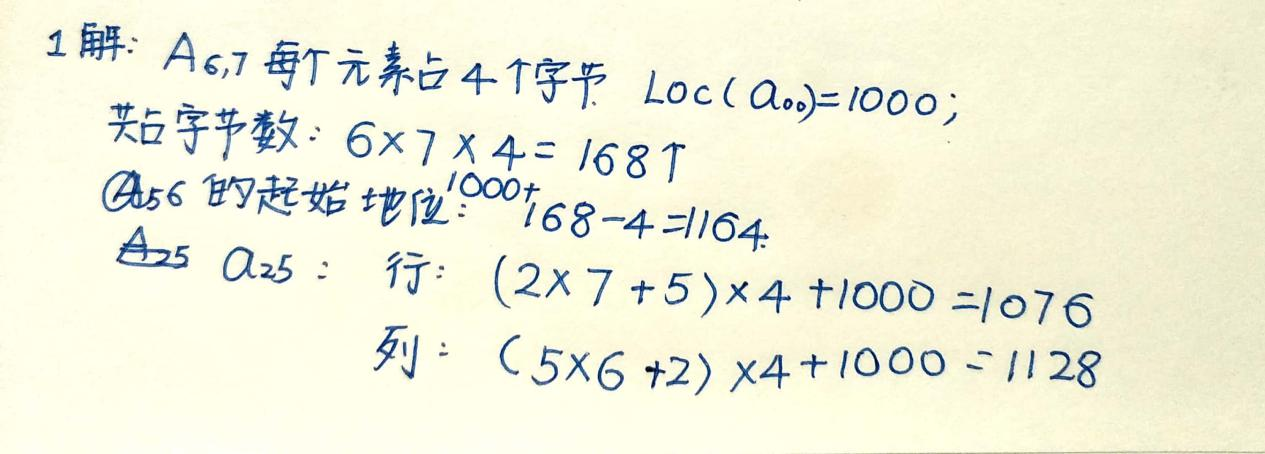 1解: A6,7 每个元素占4个字节 Loc(a00)=1000;
共占字节数: 6×7×4=168个
a56 的起始地位: 1000+168-4=1164.
A25 a25: 行: (2×7+5)×4+1000=1076
列: (5×6+2)×4+1000=1128